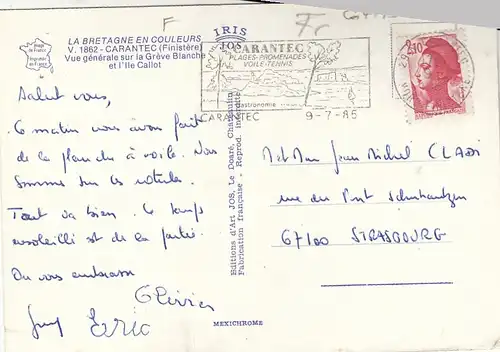 F
Fr
LA BRETAGNE EN COULEURS
V. 1862 - CARANTEC (Finistère)
Vue générale sur la Grève Blanche
et l'Ile Callot
IRIS
JOS
CARANTEC
PLAGES-PROMENADES
VOILE-TENNIS
gastronomie
CARANTEC
9-7-85
2,10
Salut vous,
Ce matin nous avons fait
de la planche à voile. Nous
sommes sur les rotules.
Tout va bien. Le temps
ensoleillé est de la partie.
On vous embrasse
Olivier
Eric
Editions d'Art JOS, Le Doaré, Chateaulin
Fabrication française - Reprod. interdite
MEXICHROME
M et Mme Jean Michel
rue du Pont
67100 STRASBOURG